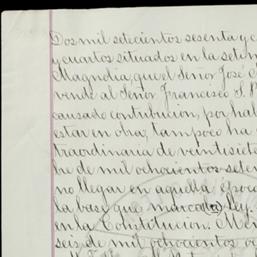 Dos mil setecientos sesenta y c
y cuartos situados en la setim
Magnolia, que el Señor José
vende al Señor Francisco S. P
causado contribucion, por hal
estar en obra, tampoco ha
traordinaria de veintisiete
bre de mil ochocientos seten
no llegar en aquella époc
la base que marca la ley.
en la Constitucion. Mem
seis de mil ochocientos oc